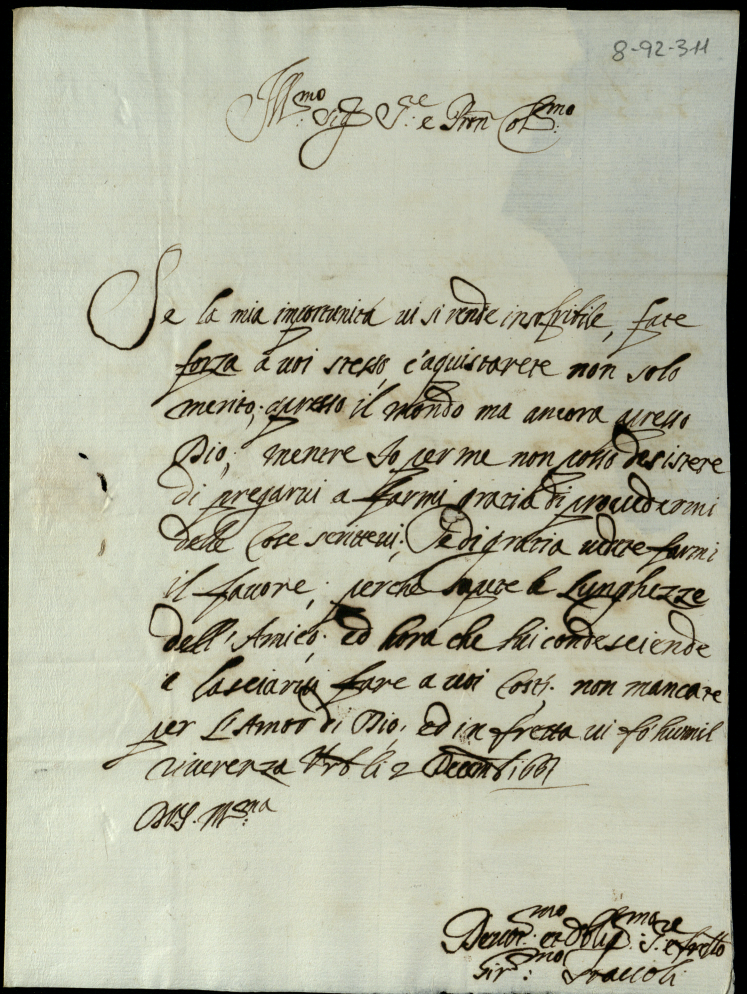 8-92-311
Ill:mo Sig: S:re e Pron Col:mo
Se la mia importunità vi si rende insofribile, fate
forza a voi stesso, e aquistarete non solo
merito, apresso il mondo ma ancora apresso
Dio, mentre Io per me non posso desistere
di pregarvi a farmi grazia di provedermi
delle Cose scrittevi; Se di grazia farmi
il favore, perche sapete le Lunghezze
dell'Amico, ed hora che lui condesciende
a lasciarvi fare a voi Costì. non mancate
per L'Amor di Dio, ed in fretta vi fò humil
riverenza Urb li 2 Decemb 1661
DVS. M:ma
Devot:mo et Oblig:mo S:re e fretto
Gir:mo